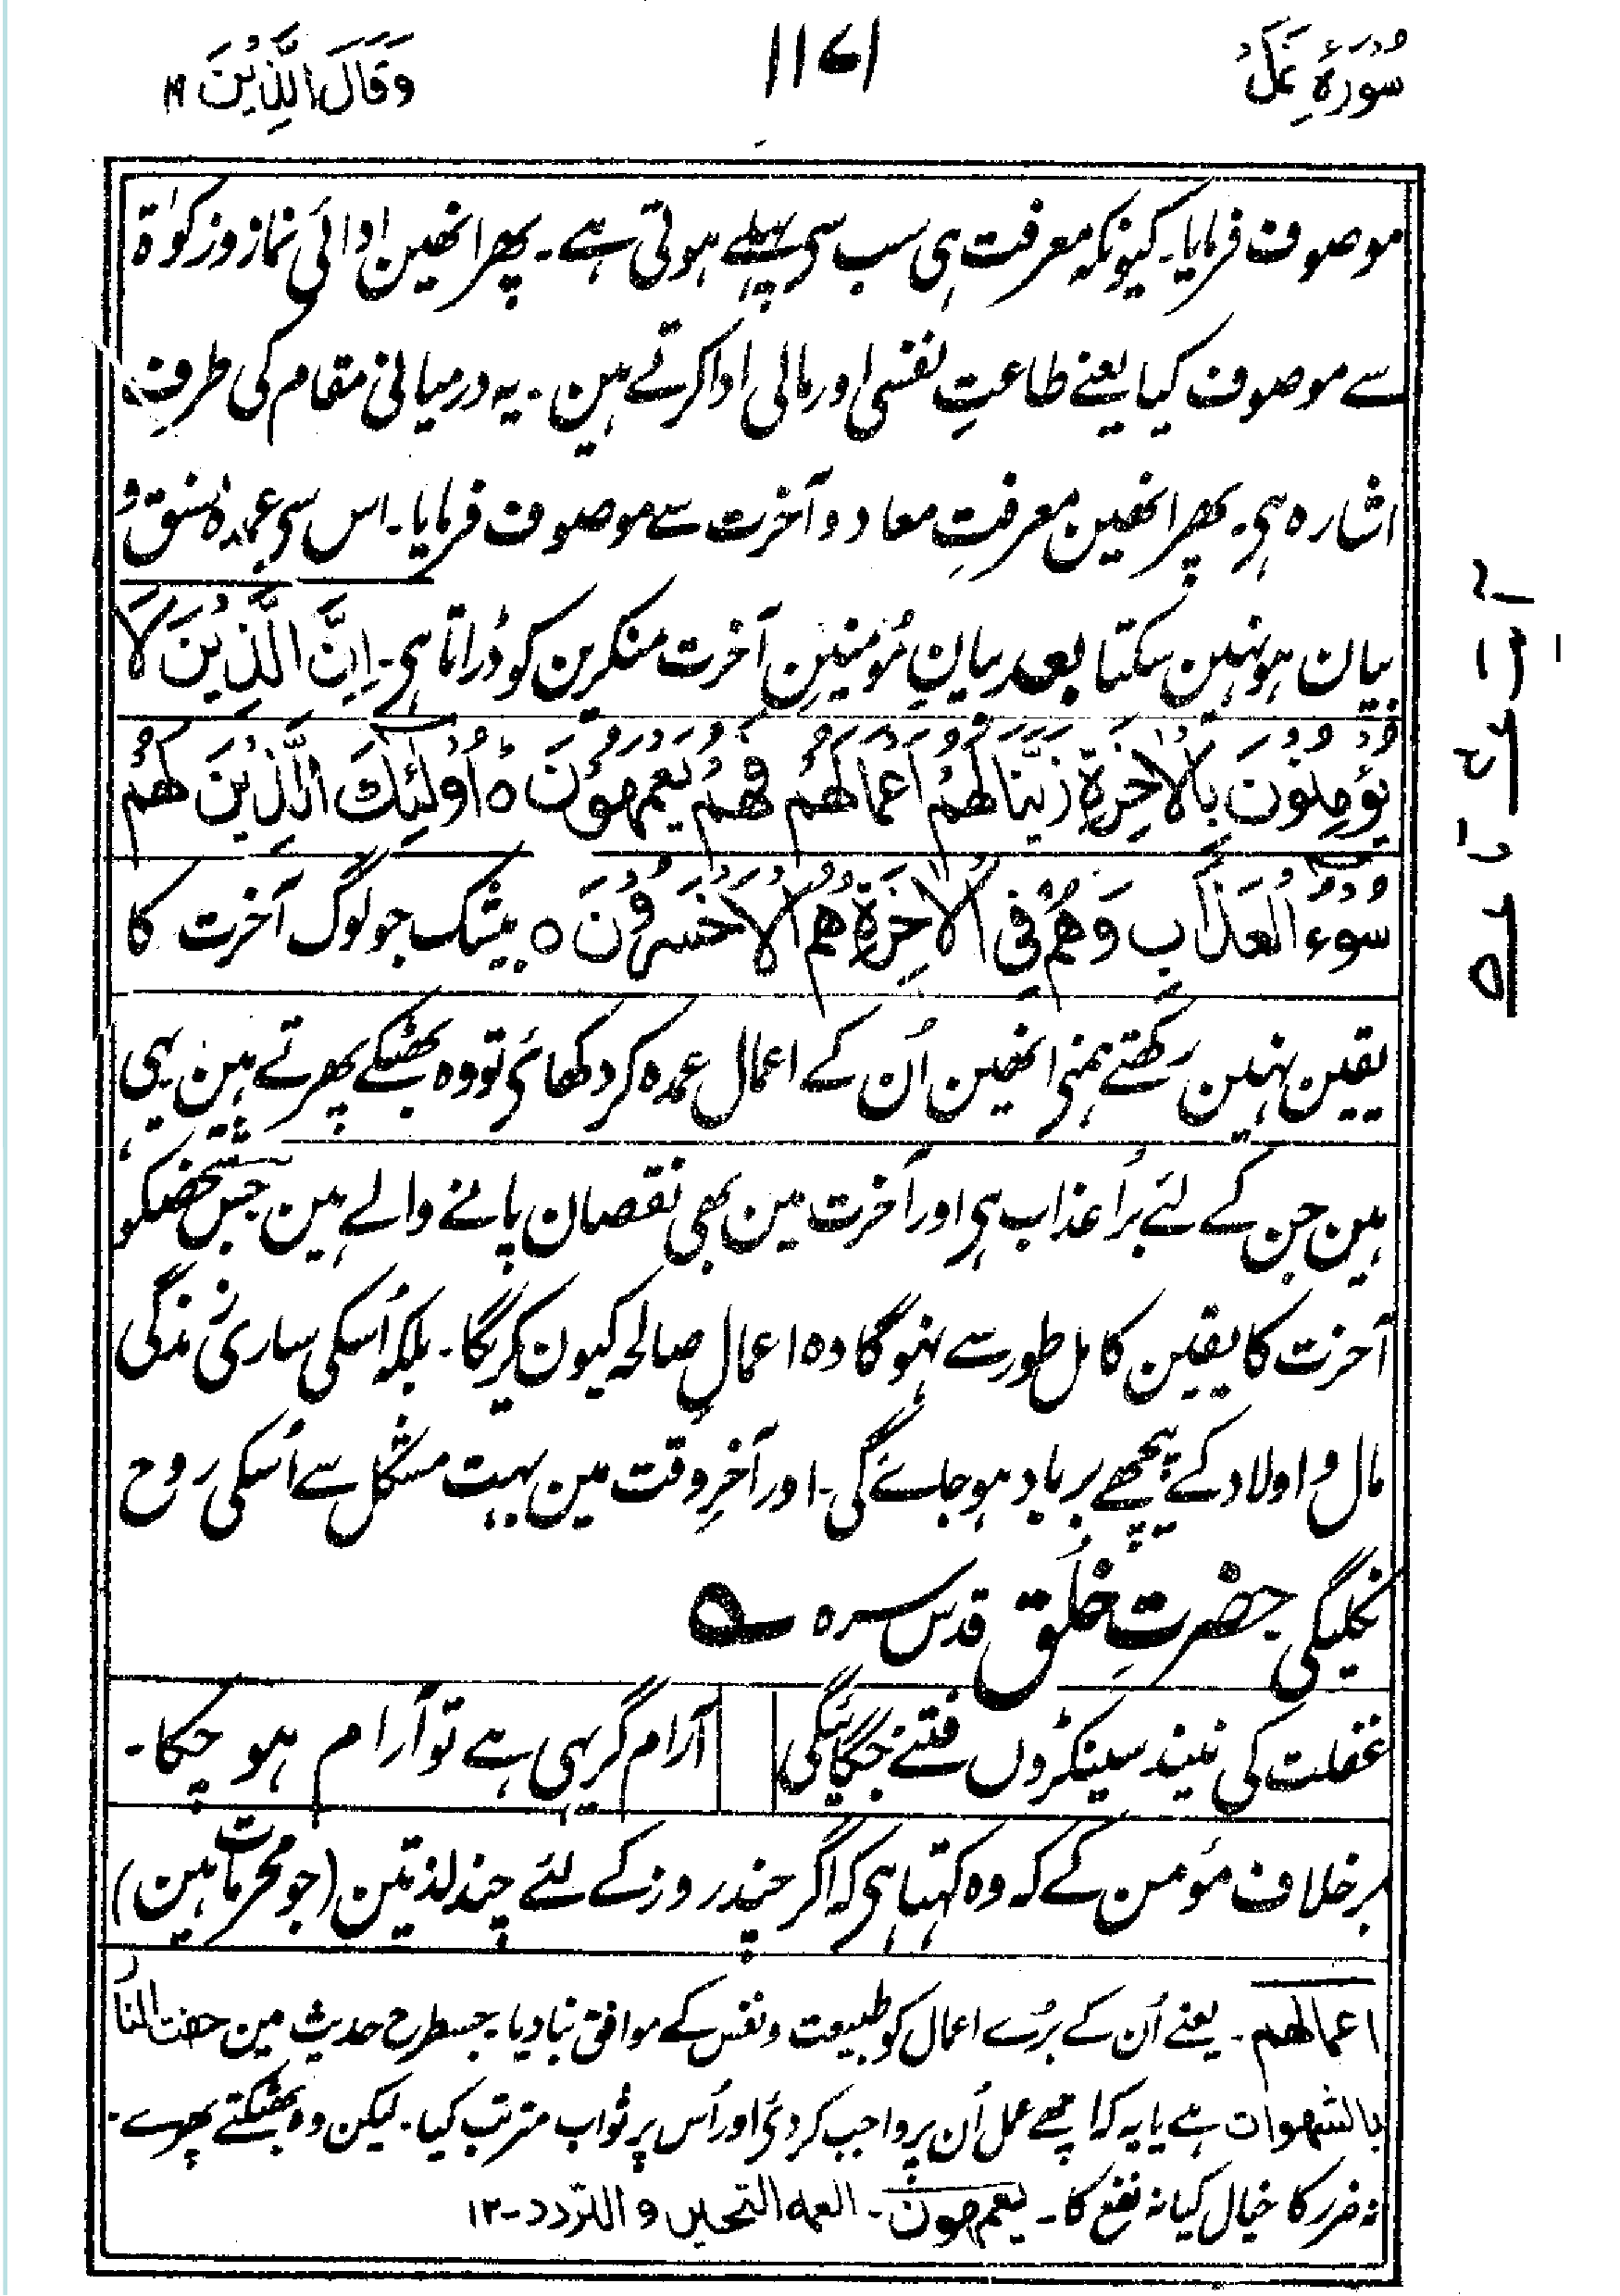 سُوْرَۃِ نَمَل
۱۱۷۱
وَقَالَ الَّذِیْنَ ۱۹
موصوف فرمایا۔ کیونکہ معرفت ہی سب سی پہلے ہوتی ہے۔ پھر انھین ادائی نماز و زکوٰۃ
سے موصوف کیا یعنے طاعتِ نفسی اور مالی ادا کرتے ہین۔ یہ درمیانی مقام کی طرف
اشارہ ہی۔ پھر انھین معرفتِ معاد و آخرت سے موصوف فرمایا۔ اس سی عمدہ نسق و
بیان ہو نہین سکتا بعد بیانِ مُؤمنین آخرت منکرین کو ڈراتا ہی۔ اِنَّ الَّذِیْنَ لَا
یُؤْمِنُوْنَ بِالْاٰخِرَۃِ زَیَّنَّا لَھُمْ اَعْمَالَھُمْ فَھُمْ یَعْمَھُوْنَ ہ اُولٰٓئِکَ الَّذِیْنَ لَھُمْ
سُوْٓءُ الْعَذَابِ وَھُمْ فِی الْاٰخِرَۃِ ھُمُ الْاَخْسَرُوْنَ ہ بیشک جو لوگ آخرت کا
یقین نہین رکھتے ہمنی انھین اُن کے اعمال عمدہ کر دکھائی تو وہ بھٹکے پھرتے ہین یہی
ہین جن کے لئے بُرا عذاب ہی اور آخرت مین بھی نقصان پانے والے ہین جس شخصکو
آخرت کا یقین کامل طور سے نہوگا وہ اعمالِ صالحہ کیون کریگا۔ بلکہ اُسکی ساری زندگی
مال و اولاد کے پیچھے برباد ہو جاۓ گی۔ اور آخرِ وقت مین بہت مشکل سے اُسکی روح
نکلیگی حضرتِ خُلق قدس سرہ ؎
غفلت کی نیند سینکڑوں فتنے جگائیگی آرام گر یہی ہے تو آرام ہو چکا۔
برخلاف مؤمن کے کہ وہ کہتا ہی کہ اگر چند روز کے لئے چند لذتین (جو محرمات ہین)
اعمالھم۔ یعنے اُن کے بُرے اعمال کو طبیعت و نفس کے موافق بنا دیا۔ جسطرح حدیث مین حفت النار
بالشھوات ہے یا یہ کہ اچھے عمل اُن پر واجب کر دئی اور اُس پر ثواب مترتب کیا۔ لیکن وہ بھٹکتے پھرے۔
نہ ضرر کا خیال کیا نہ نفع کا۔ یعمھون۔ العمہ التحیر و التردد۔ ۱۲